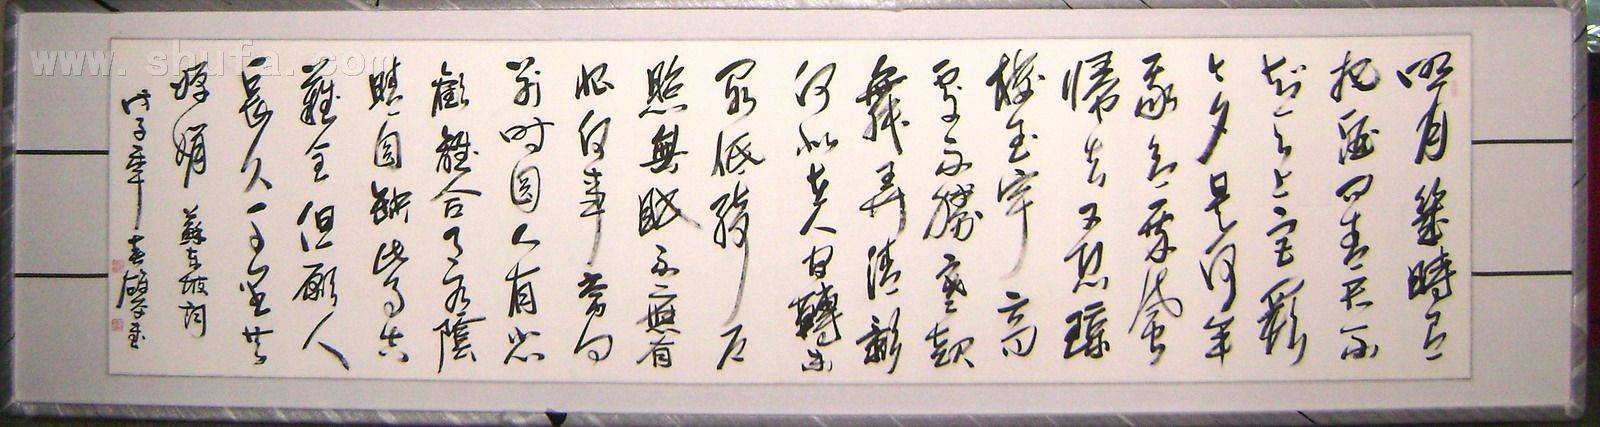 明月幾時有
把酒問青天不
知天上宮闕
今夕是何年
我欲乘風
歸去又恐瓊
樓玉宇高
處不勝寒起
舞弄清影
何似在人間轉朱
閣低綺戶
照無眠不應有
恨何事常向
別時圓人有悲
歡離合月有陰
晴圓缺此事古
難全但願人
長久千里共
嬋娟 蘇東坡詞
戊子年春
www.shufa.com